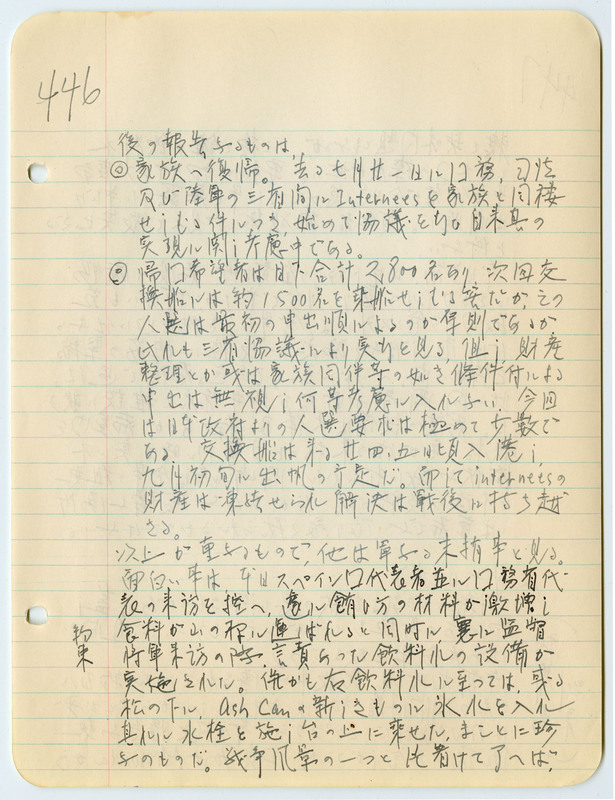 446
後の報告するものは、
◎家族へ復帰。去る七月廿一日に国務、司法
及び陸軍の三省間にInterneesを家族と同棲
せしむる件につき、始めて協議をなし目下其の
実現に関し考慮中である。
◎帰国希望者は目下合計2,800名あり、次回交
換船には約1500名を乗船せしむる筈だが、この
人選は最初の申出順によるのが原則であるが、
これも三省協議により実行を見る、但し、財産
整理とか或は家族同伴等の如き條件付による
申出は無視し何等考慮に入れない。今回
は日本政府よりの人選要求は極めて少数で
ある。交換船は来る廿四、五日頃入港し、
九月初旬に出帆の予定だ。而してinterneesの
財産は凍結せられ解決は戦後に持ち越
さる。
以上が重なるもので、他は単なる未梢事と見る。
面白い事は本日スペイン国代表者並に国務省代
表の来訪を控へ、遽に賄ひ方の材料が激増し
食料が山の様に運ばれると同時に曩に監督
将軍来訪の際、言責あった飲料水の設備が
約束
実施された。併かも右飲料水に至っては、或る
松の下に、Ash Canの新しきものに氷水を入れ
其れに水栓を施し台の上に乗せた、まことに珍
なものだ。戦争風景の一つと片着けて了へば、